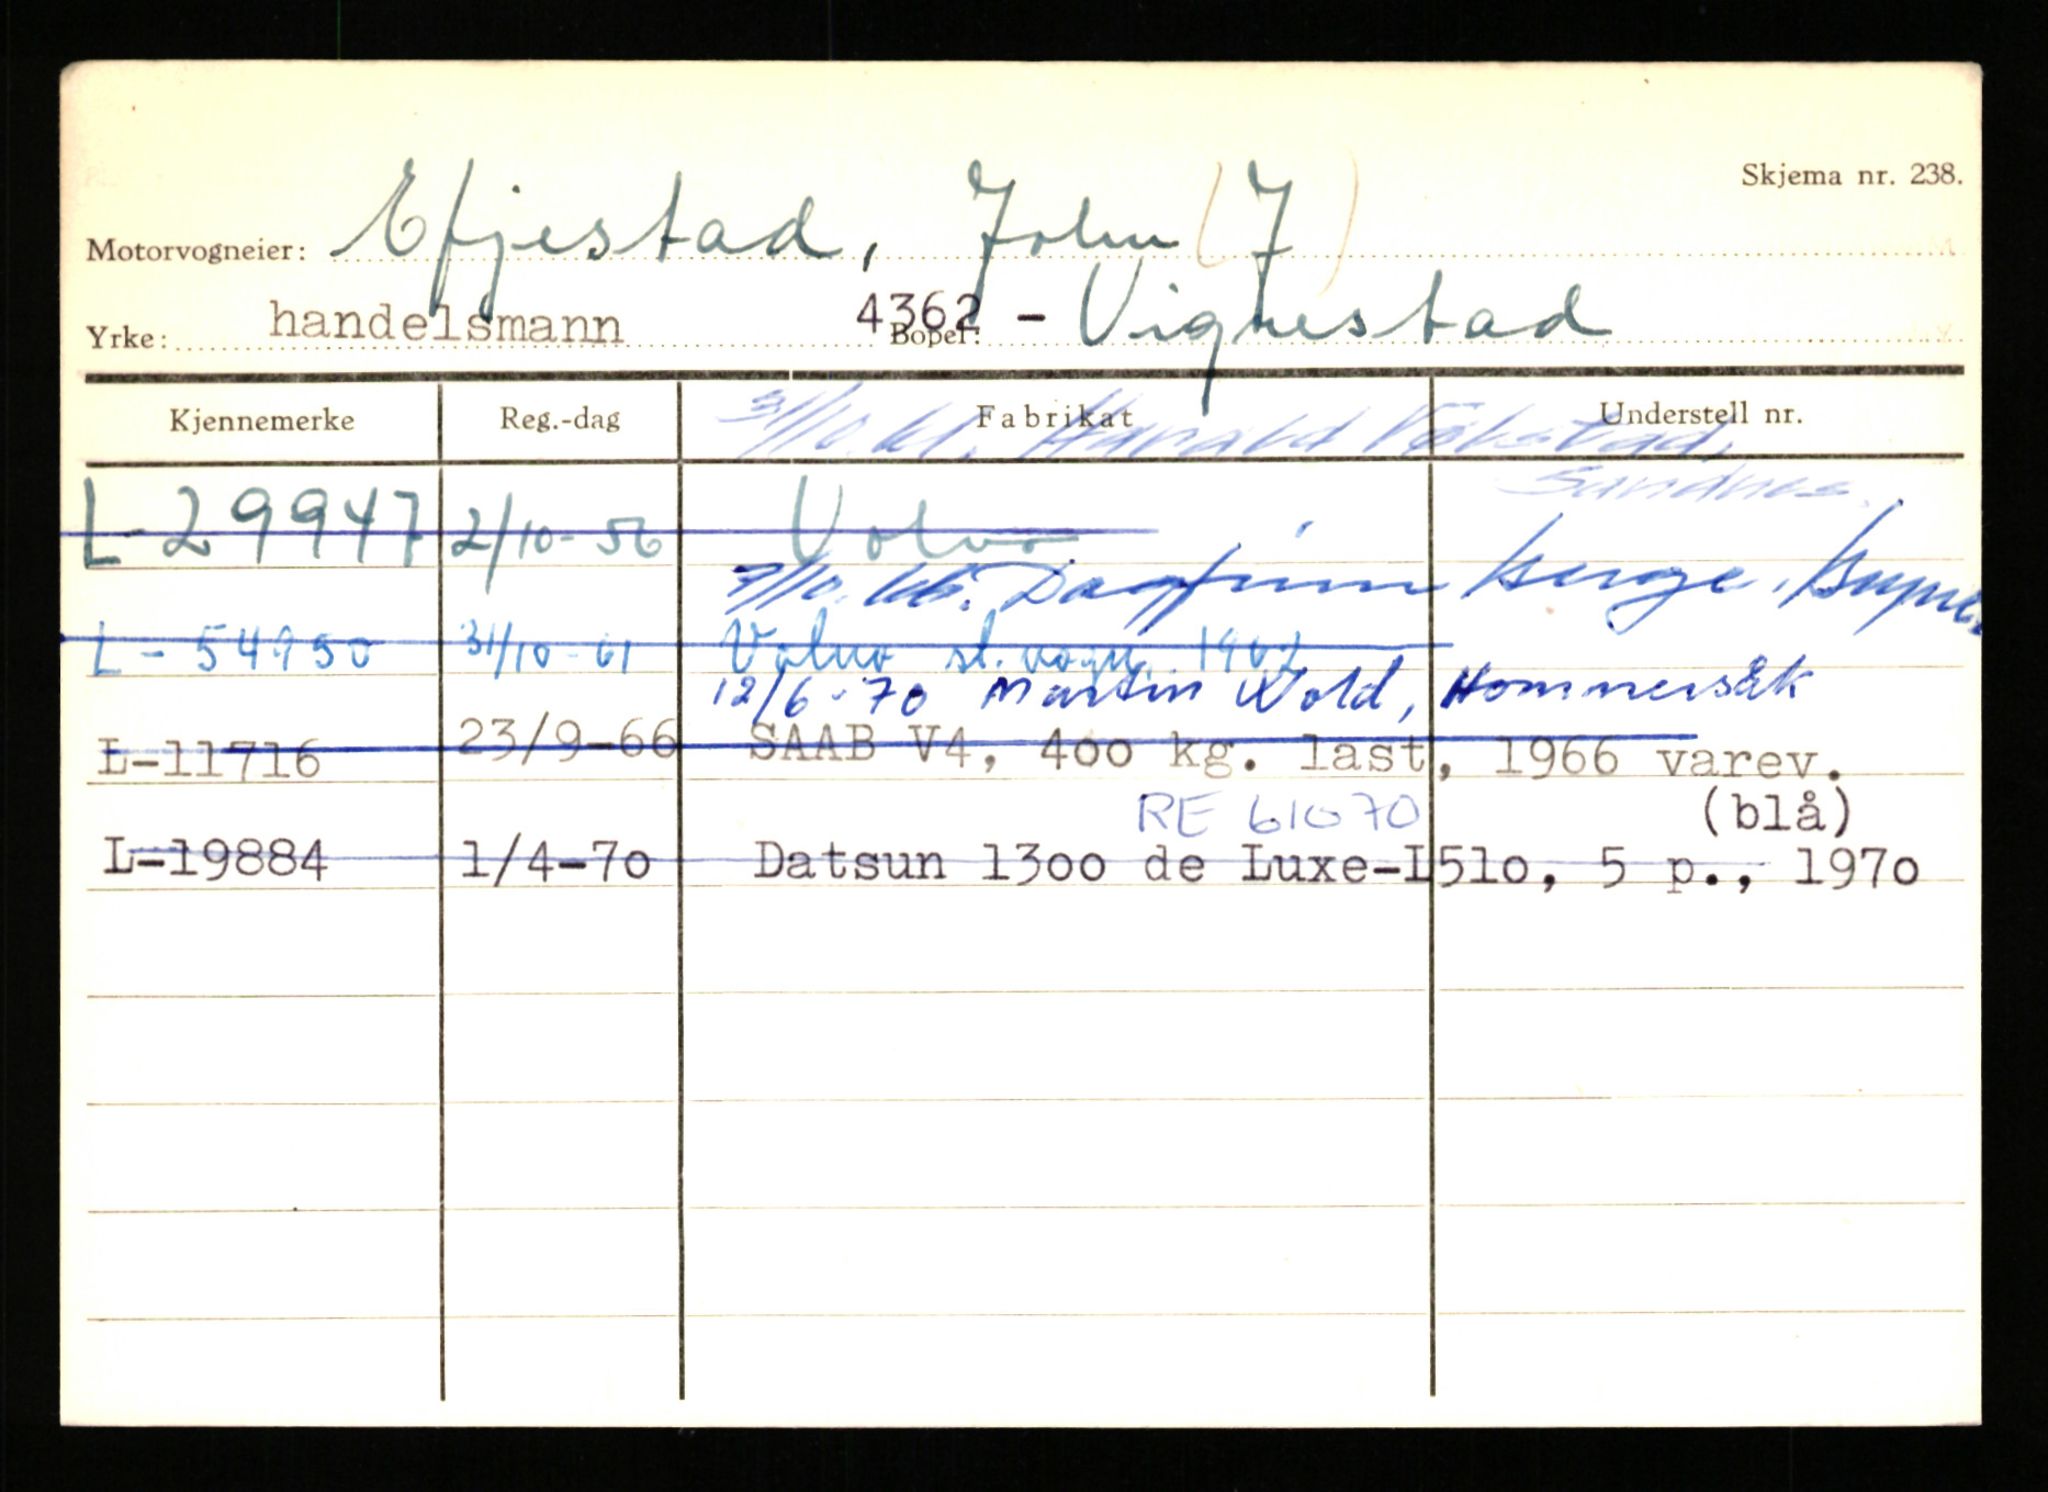 Skjema nr. 238.
Motorvogneier: Efjestad, John (J)
Yrke: handelsmann 4362 - Bopel: Vigrestad
Kjennemerke Reg.-dag Fabrikat Understell nr.
31/10. 61. Harald
Sandnes.
L-29947 2/10-56 Volvo
7/10. 66. Dagfinn Berge,
L-54950 31/10-61 Volvo st.vogn, 1962
12/6-70 Martin Wold, Hommersåk
L-11716 23/9-66 SAAB V4, 400 kg. last, 1966 varev.
RE 61070 (blå)
L-19884 1/4-70 Datsun 1300 de Luxe-L510, 5 p., 1970